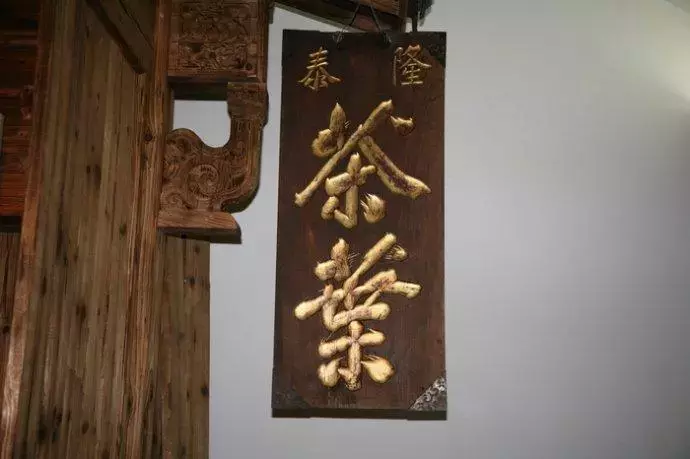 隆泰
茶葉